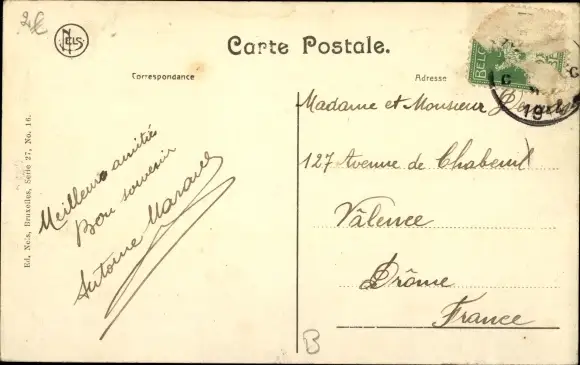 NELS
Carte Postale.
Correspondance
Adresse
BELG
Ed. Nels, Bruxelles, Série 27, No. 16.
Meilleurs amitiés
Bon souvenir
Antoine
Madame et Monsieur
127 Avenue de Chabeuil
Valence
Drôme
France
B